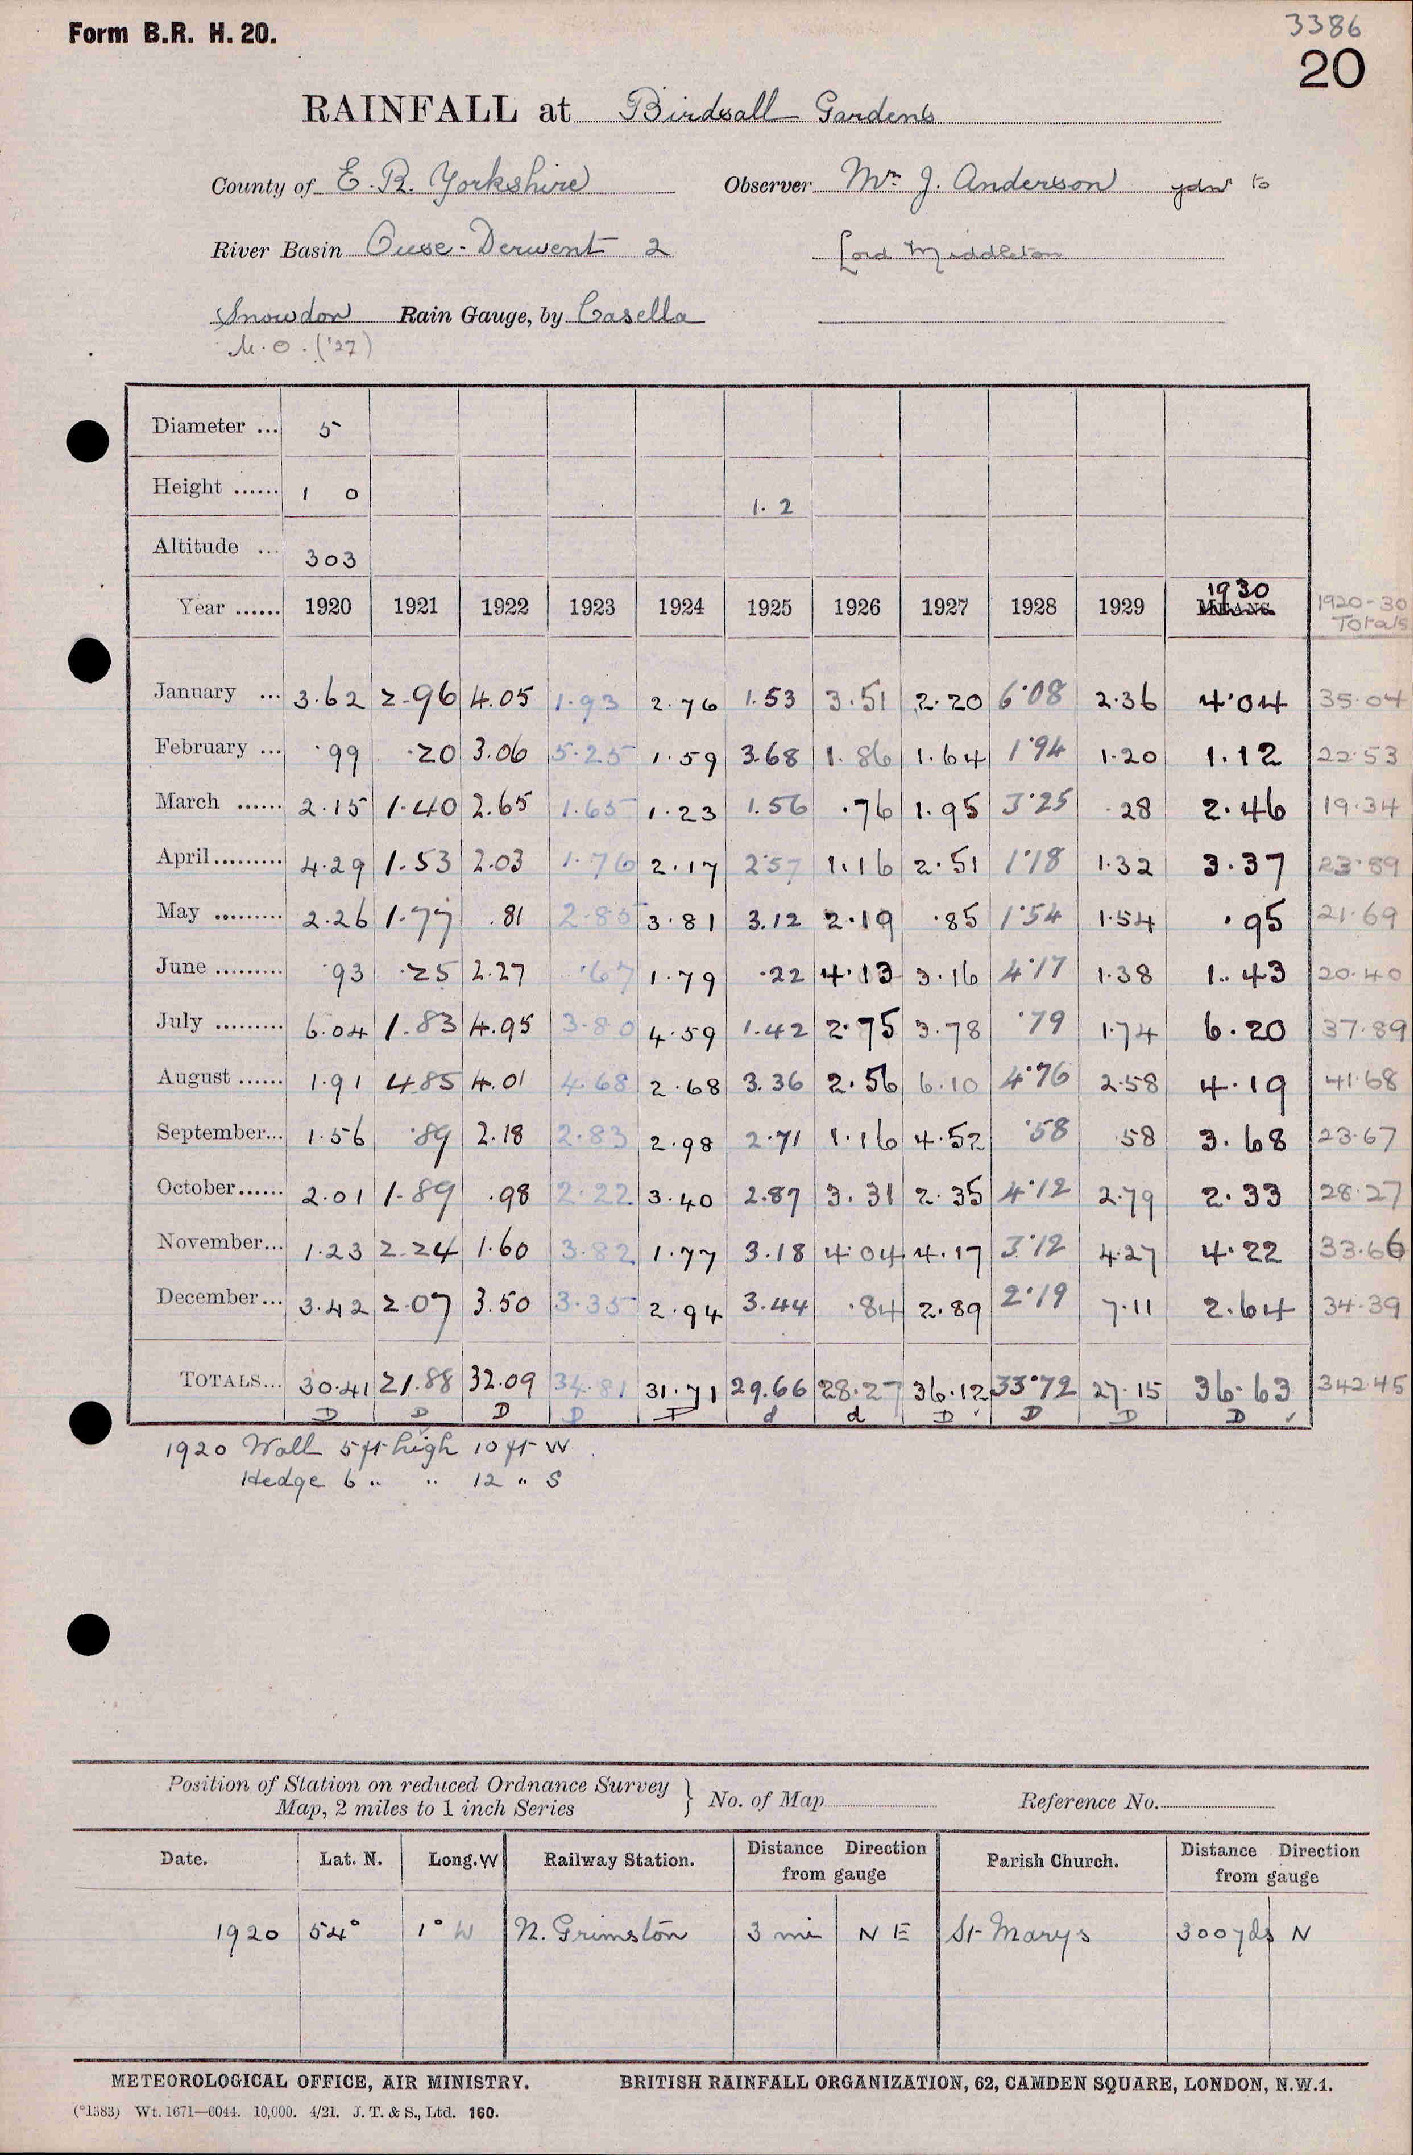 Form B.R. H. 20.
3386
20
RAINFALL at Birdsall Gardens
County of E. R. Yorkshire Observer Mr. J. Anderson gdnr to
River Basin Ouse-Derwent 2 Lord Middleton
Snowdon Rain Gauge, by Casella
M.O. ('27)
Diameter ... 5
Height ...... 1 0 1. 2
Altitude ... 303
Year ...... 1920 1921 1922 1923 1924 1925 1926 1927 1928 1929 MEANS. 1930 1920-30 Totals
January ... 3.62 2.96 4.05 1.93 2.76 1.53 3.51 2.20 6.08 2.36 4.04 35.04
February ... .99 .20 3.06 5.25 1.59 3.68 1.86 1.64 1.94 1.20 1.12 22.53
March ...... 2.15 1.40 2.65 1.65 1.23 1.56 .76 1.95 3.25 .28 2.46 19.34
April ......... 4.29 1.53 2.03 1.76 2.17 2.57 1.16 2.51 1.18 1.32 3.37 23.89
May ......... 2.26 1.77 .81 2.85 3.81 3.12 2.19 .85 1.54 1.54 .95 21.69
June ......... .93 .25 2.27 .67 1.79 .22 4.13 3.16 4.17 1.38 1.43 20.40
July ......... 6.04 1.83 4.95 3.80 4.59 1.42 2.75 3.78 .79 1.74 6.20 37.89
August ...... 1.91 4.85 4.01 4.68 2.68 3.36 2.56 6.10 4.76 2.58 4.19 41.68
September... 1.56 .89 2.18 2.83 2.98 2.71 1.16 4.52 .58 .58 3.68 23.67
October...... 2.01 1.89 .98 2.22 3.40 2.87 3.31 2.35 4.12 2.79 2.33 28.27
November... 1.23 2.24 1.60 3.82 1.77 3.18 4.04 4.17 3.12 4.27 4.22 33.66
December... 3.42 2.07 3.50 3.35 2.94 3.44 .84 2.89 2.19 7.11 2.64 34.39
TOTALS... 30.41 21.88 32.09 34.81 31.71 29.66 28.27 36.12 33.72 27.15 36.63 342.45
D D D D D d d D D D D
1920 Wall 5 ft high 10 ft W.
Hedge 6 " " 12 " S
Position of Station on reduced Ordnance Survey Map, 2 miles to 1 inch Series } No. of Map Reference No.
Date. Lat. N. Long. W Railway Station. Distance Direction from gauge Parish Church. Distance Direction from gauge
1920 54° 1° W N. Grimston 3 mi N E St Marys 300 yds N
METEOROLOGICAL OFFICE, AIR MINISTRY. BRITISH RAINFALL ORGANIZATION, 62, CAMDEN SQUARE, LONDON, N.W.1.
(*1583) Wt. 1671—6044. 10,000. 4/21. J. T. & S., Ltd. 160.